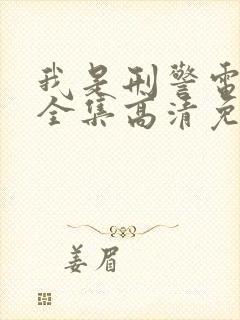 我是刑警电
全集高清免
姜眉